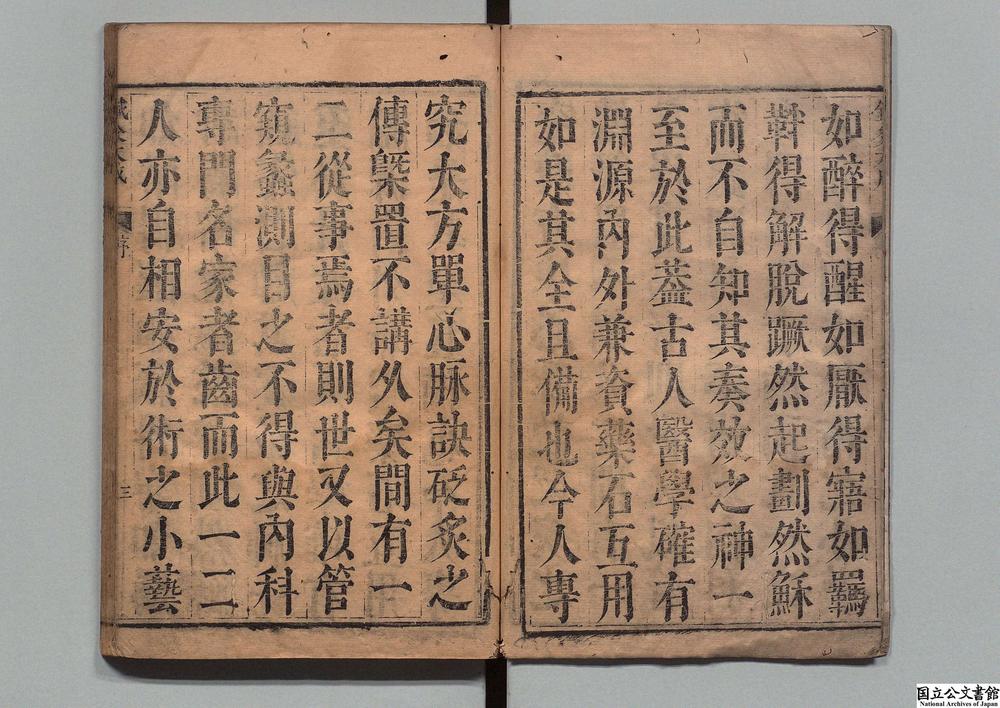 如醉得醒如厭得寤如羈
靮得解脫蹶然起劃然穌
而不自知其奏效之神一
至於此葢古人醫學確有
淵源內外兼資藥石互用
如是其全且備也今人專
究大方單心脉訣砭炙之
傳槩置不講久矣間有一
二從事焉者則世又以管
窺蠡測目之不得與內科
專門名家者齒而此一二
人亦自相安於術之小藝
序
三
国立公文書館
National Archives of Japan